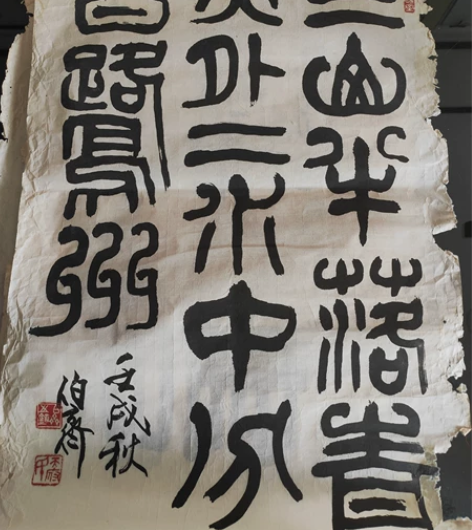 三山半落青
天外二水中分
白鷺州
壬戌秋
伯齊